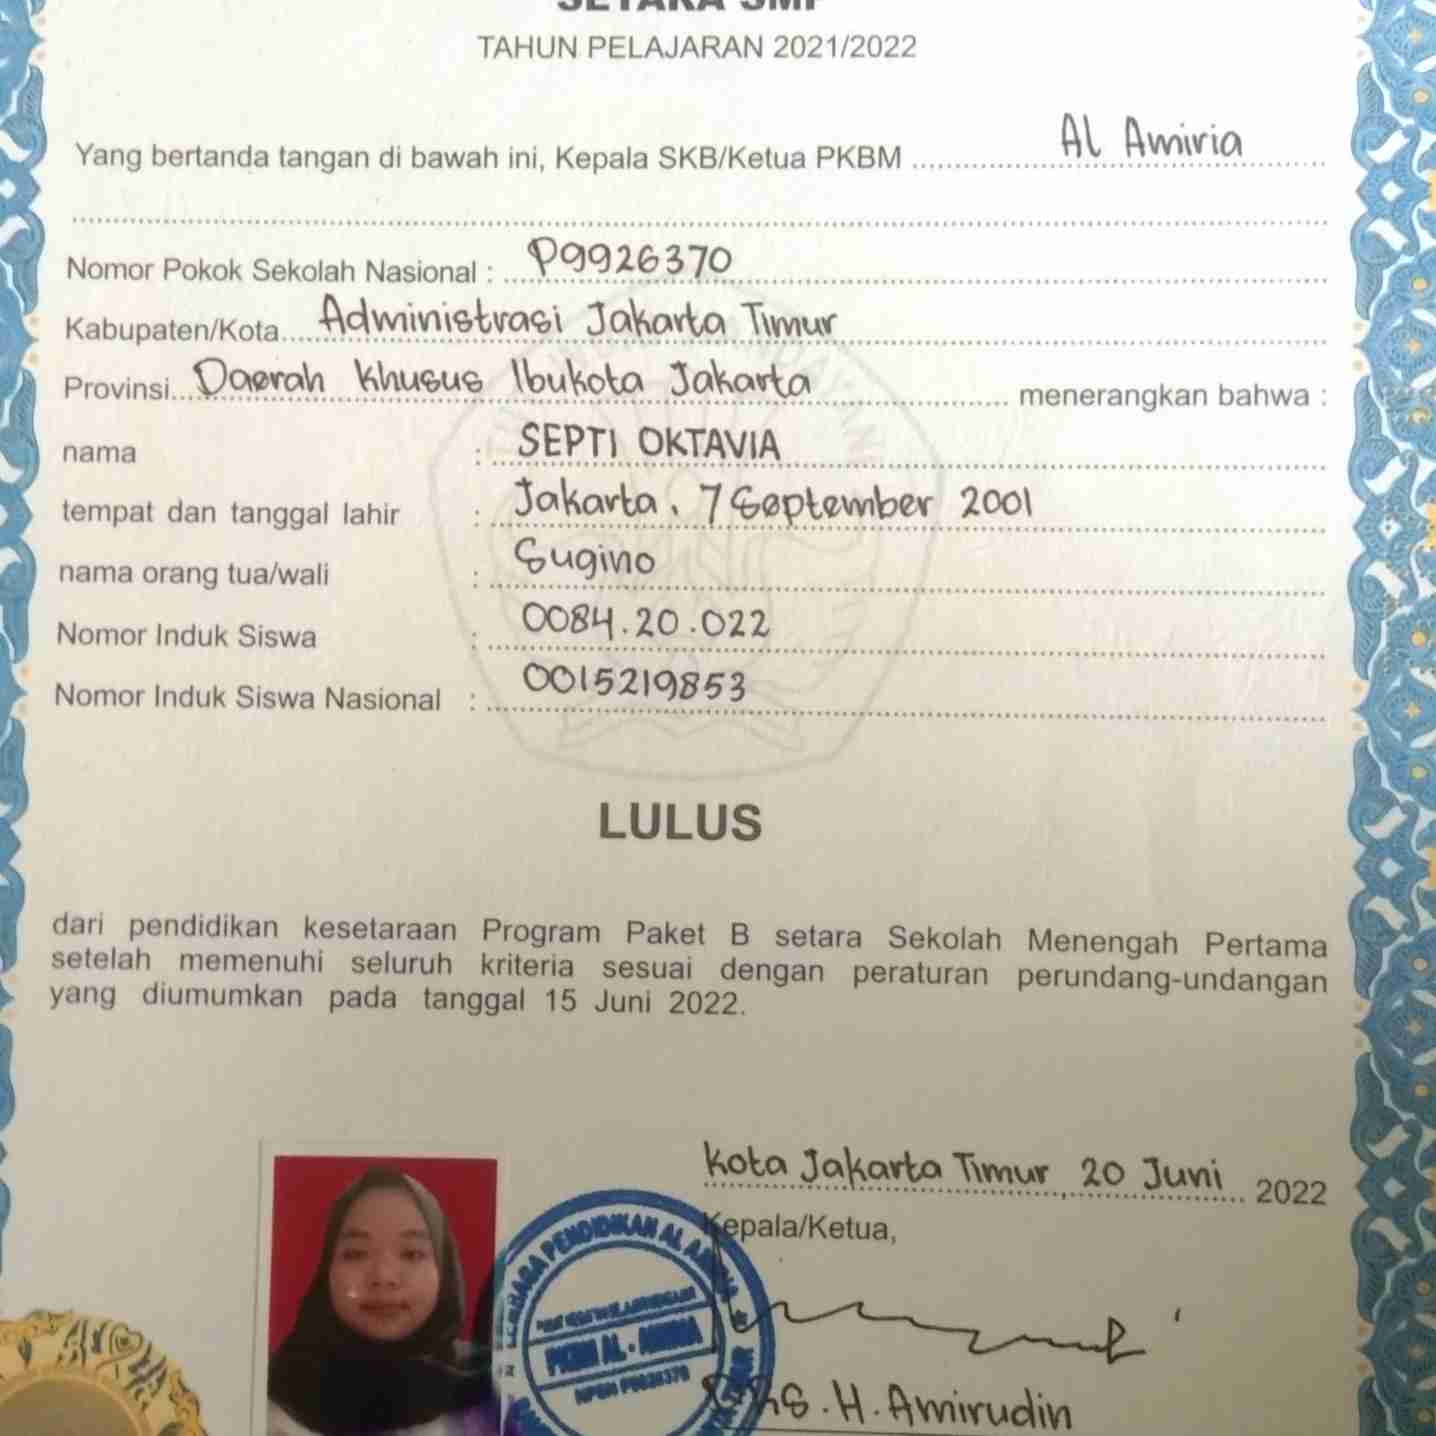 SETARA SMP
TAHUN PELAJARAN 2021/2022
Yang bertanda tangan di bawah ini, Kepala SKB/Ketua PKBM Al Amiria
Nomor Pokok Sekolah Nasional : P9926370
Kabupaten/Kota Administrasi Jakarta Timur
Provinsi Daerah Khusus Ibukota Jakarta menerangkan bahwa :
nama : SEPTI OKTAVIA
tempat dan tanggal lahir : Jakarta, 7 September 2001
nama orang tua/wali : Sugino
Nomor Induk Siswa : 0084.20.022
Nomor Induk Siswa Nasional : 0015219853
LULUS
dari pendidikan kesetaraan Program Paket B setara Sekolah Menengah Pertama
setelah memenuhi seluruh kriteria sesuai dengan peraturan perundang-undangan
yang diumumkan pada tanggal 15 Juni 2022.
Kota Jakarta Timur, 20 Juni 2022
Kepala/Ketua,
LEMBAGA PENDIDIKAN AL AMIRIA
PKBM AL - AMIRIA
NPSN P9926370
Drs. H. Amirudin